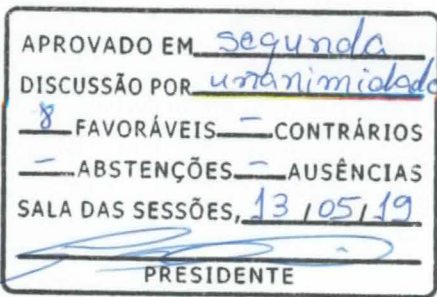 APROVADO EM segunda
DISCUSSÃO POR unanimidade
8 FAVORÁVEIS - CONTRÁRIOS
- ABSTENÇÕES - AUSÊNCIAS
SALA DAS SESSÕES, 13/05/19
PRESIDENTE